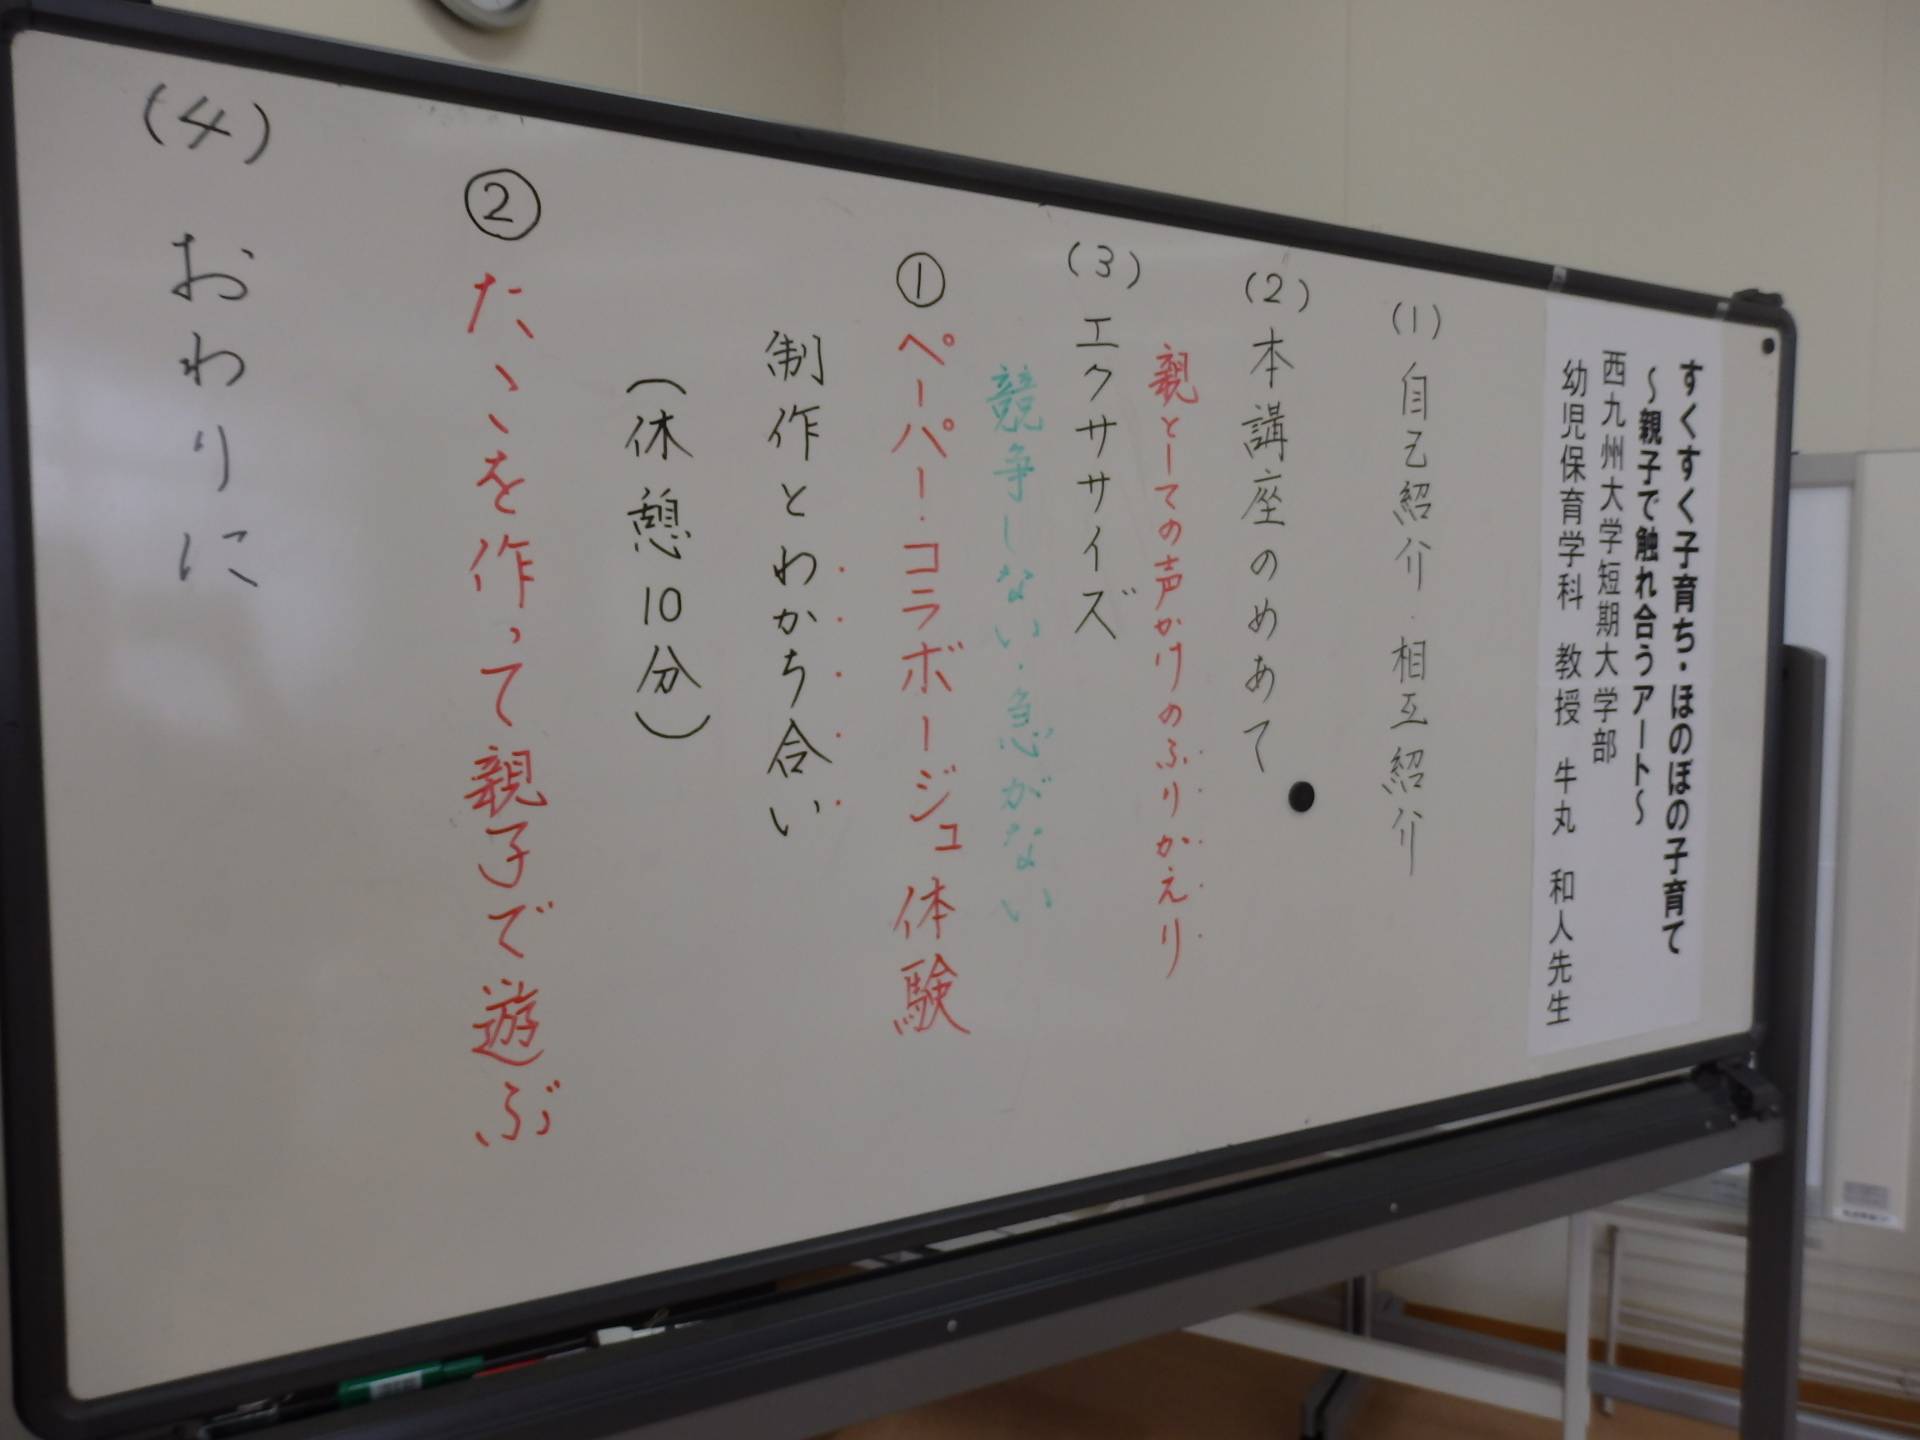 すくすく子育ち・ほのぼの子育て
～親子で触れ合うアート～
西九州大学短期大学部
幼児保育学科 教授 牛丸 和人先生
(1) 自己紹介・相互紹介
(2) 本講座のめあて
親としての声かけのふりかえり
(3) エクササイズ
競争しない・急がない
① ペーパー・コラボージュ体験
制作とわかち合い
(休憩10分)
② たこを作って親子で遊ぶ
(4) おわりに